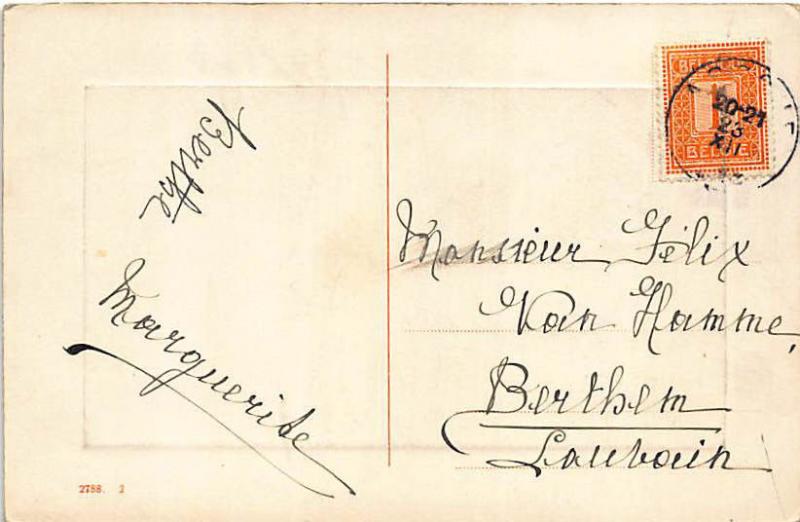 Berthe
Marguerite
2788. 2
BELGIE
1
20-21
23
XII
BELGIE
Monsieur Félix
Van Hamme,
Berthem
Louvain